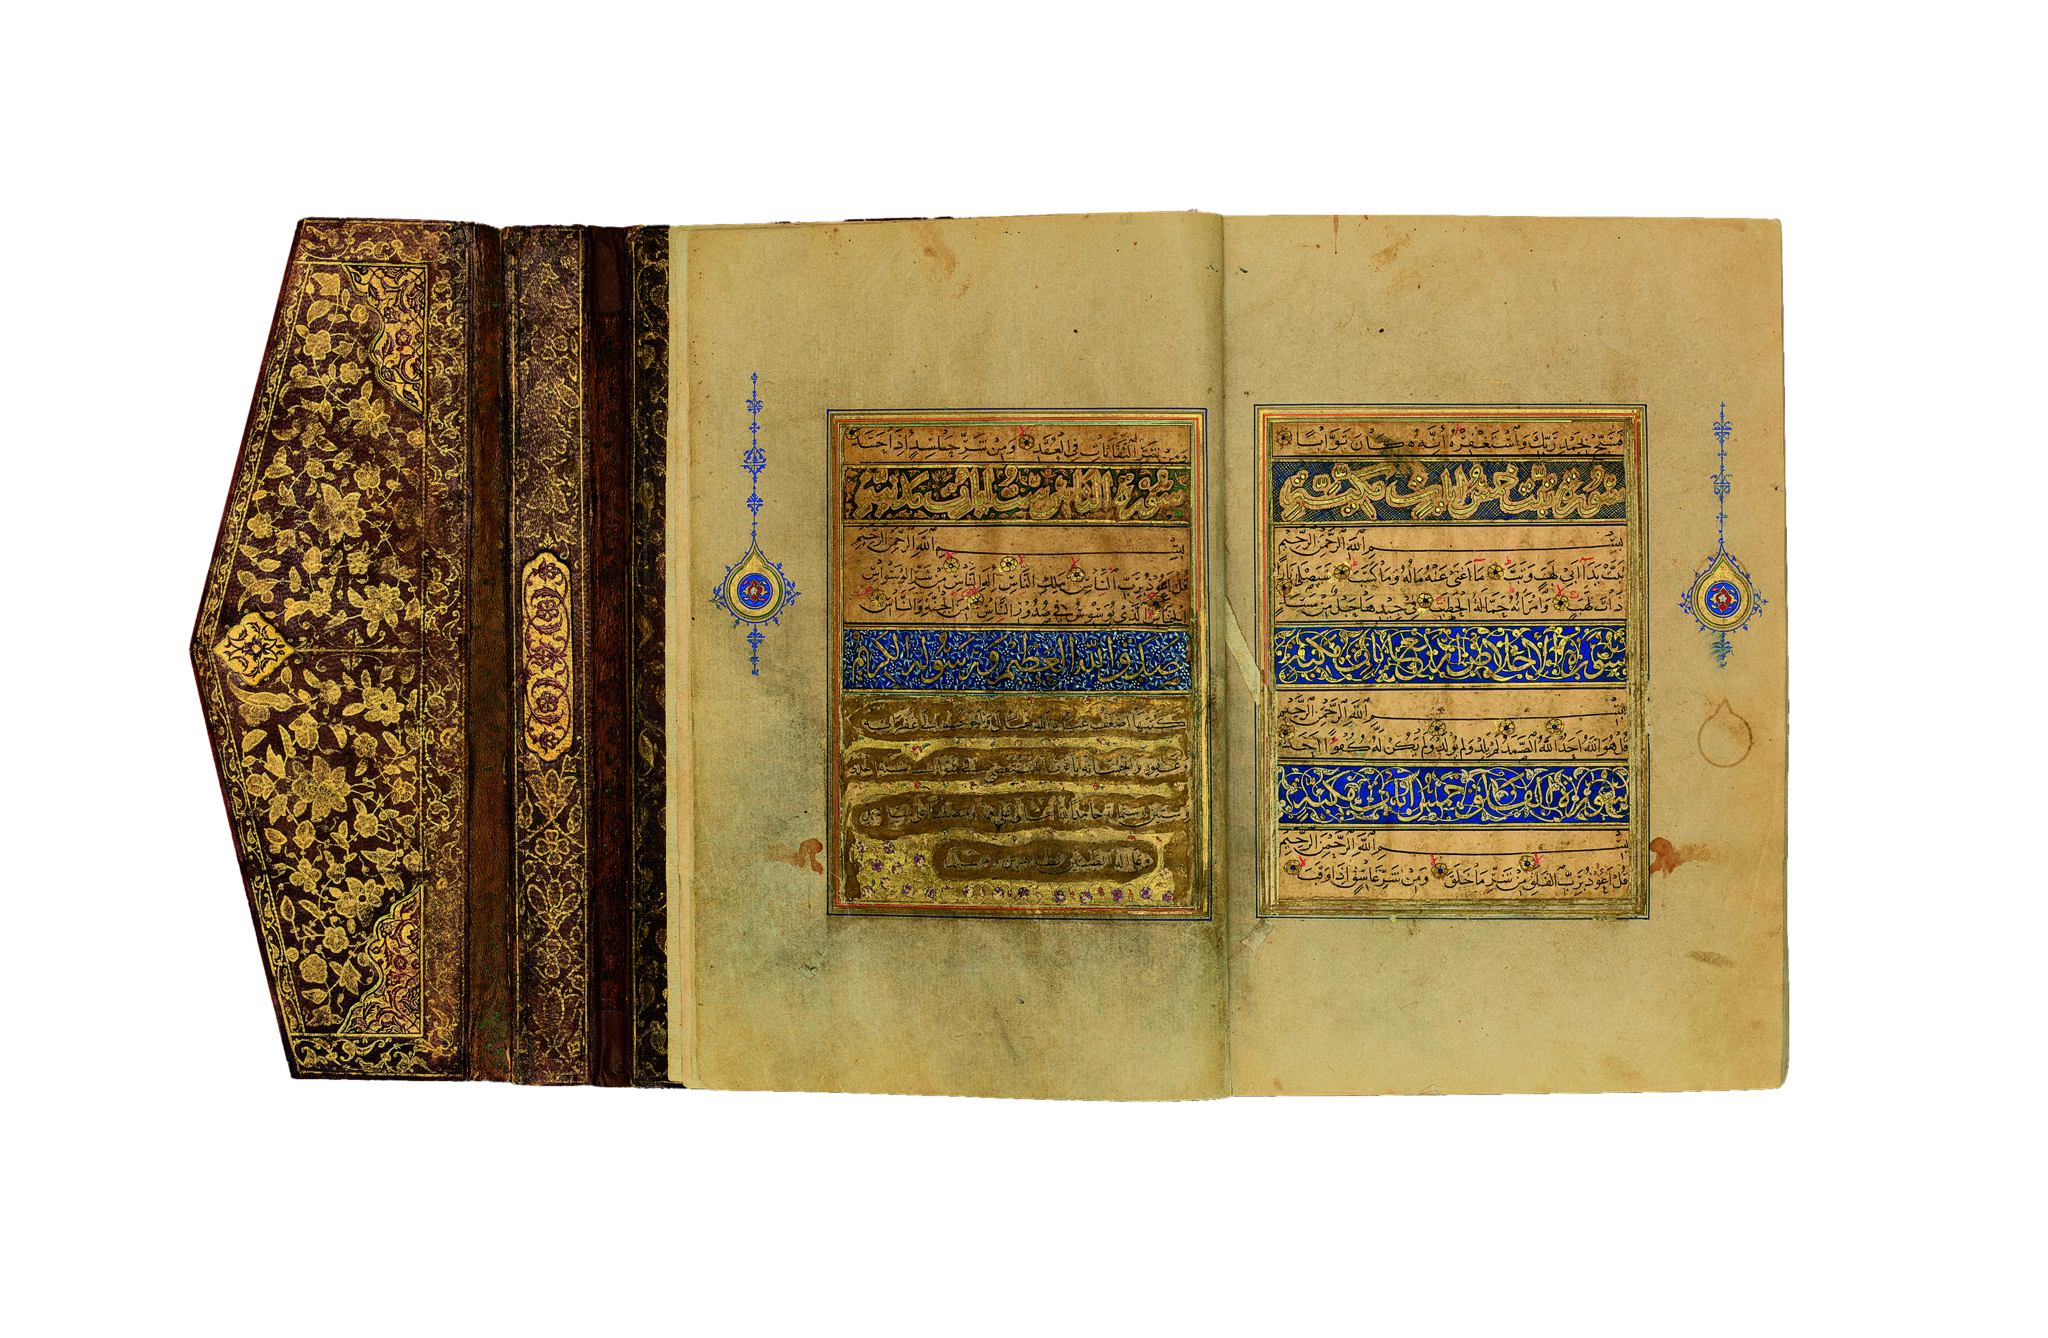 فَسَبِّحْ بِحَمْدِ رَبِّكَ وَاسْتَغْفِرْهُ إِنَّهُ كَانَ تَوَّابًا
سورة تبت خمس ايات مكية
بِسْمِ اللَّهِ الرَّحْمَنِ الرَّحِيمِ
تَبَّتْ يَدَا أَبِي لَهَبٍ وَتَبَّ مَا أَغْنَى عَنْهُ مَالُهُ وَمَا كَسَبَ سَيَصْلَى نَارًا
ذَاتَ لَهَبٍ وَامْرَأَتُهُ حَمَّالَةَ الْحَطَبِ فِي جِيدِهَا حَبْلٌ مِنْ مَسَدٍ
سورة الاخلاص اربع ايات مكية
بِسْمِ اللَّهِ الرَّحْمَنِ الرَّحِيمِ
قُلْ هُوَ اللَّهُ أَحَدٌ اللَّهُ الصَّمَدُ لَمْ يَلِدْ وَلَمْ يُولَدْ وَلَمْ يَكُنْ لَهُ كُفُوًا أَحَدٌ
سورة الفلق خمس ايات مكية
بِسْمِ اللَّهِ الرَّحْمَنِ الرَّحِيمِ
قُلْ أَعُوذُ بِرَبِّ الْفَلَقِ مِنْ شَرِّ مَا خَلَقَ وَمِنْ شَرِّ غَاسِقٍ إِذَا وَقَبَ
وَمِنْ شَرِّ النَّفَّاثَاتِ فِي الْعُقَدِ وَمِنْ شَرِّ حَاسِدٍ إِذَا حَسَدَ
سورة الناس ست ايات مدنية
بِسْمِ اللَّهِ الرَّحْمَنِ الرَّحِيمِ
قُلْ أَعُوذُ بِرَبِّ النَّاسِ مَلِكِ النَّاسِ إِلَهِ النَّاسِ مِنْ شَرِّ الْوَسْوَاسِ
الْخَنَّاسِ الَّذِي يُوَسْوِسُ فِي صُدُورِ النَّاسِ مِنَ الْجِنَّةِ وَالنَّاسِ
صدق الله العظيم و رسوله الكريم
كتبها اضعف عباد الله تعالى